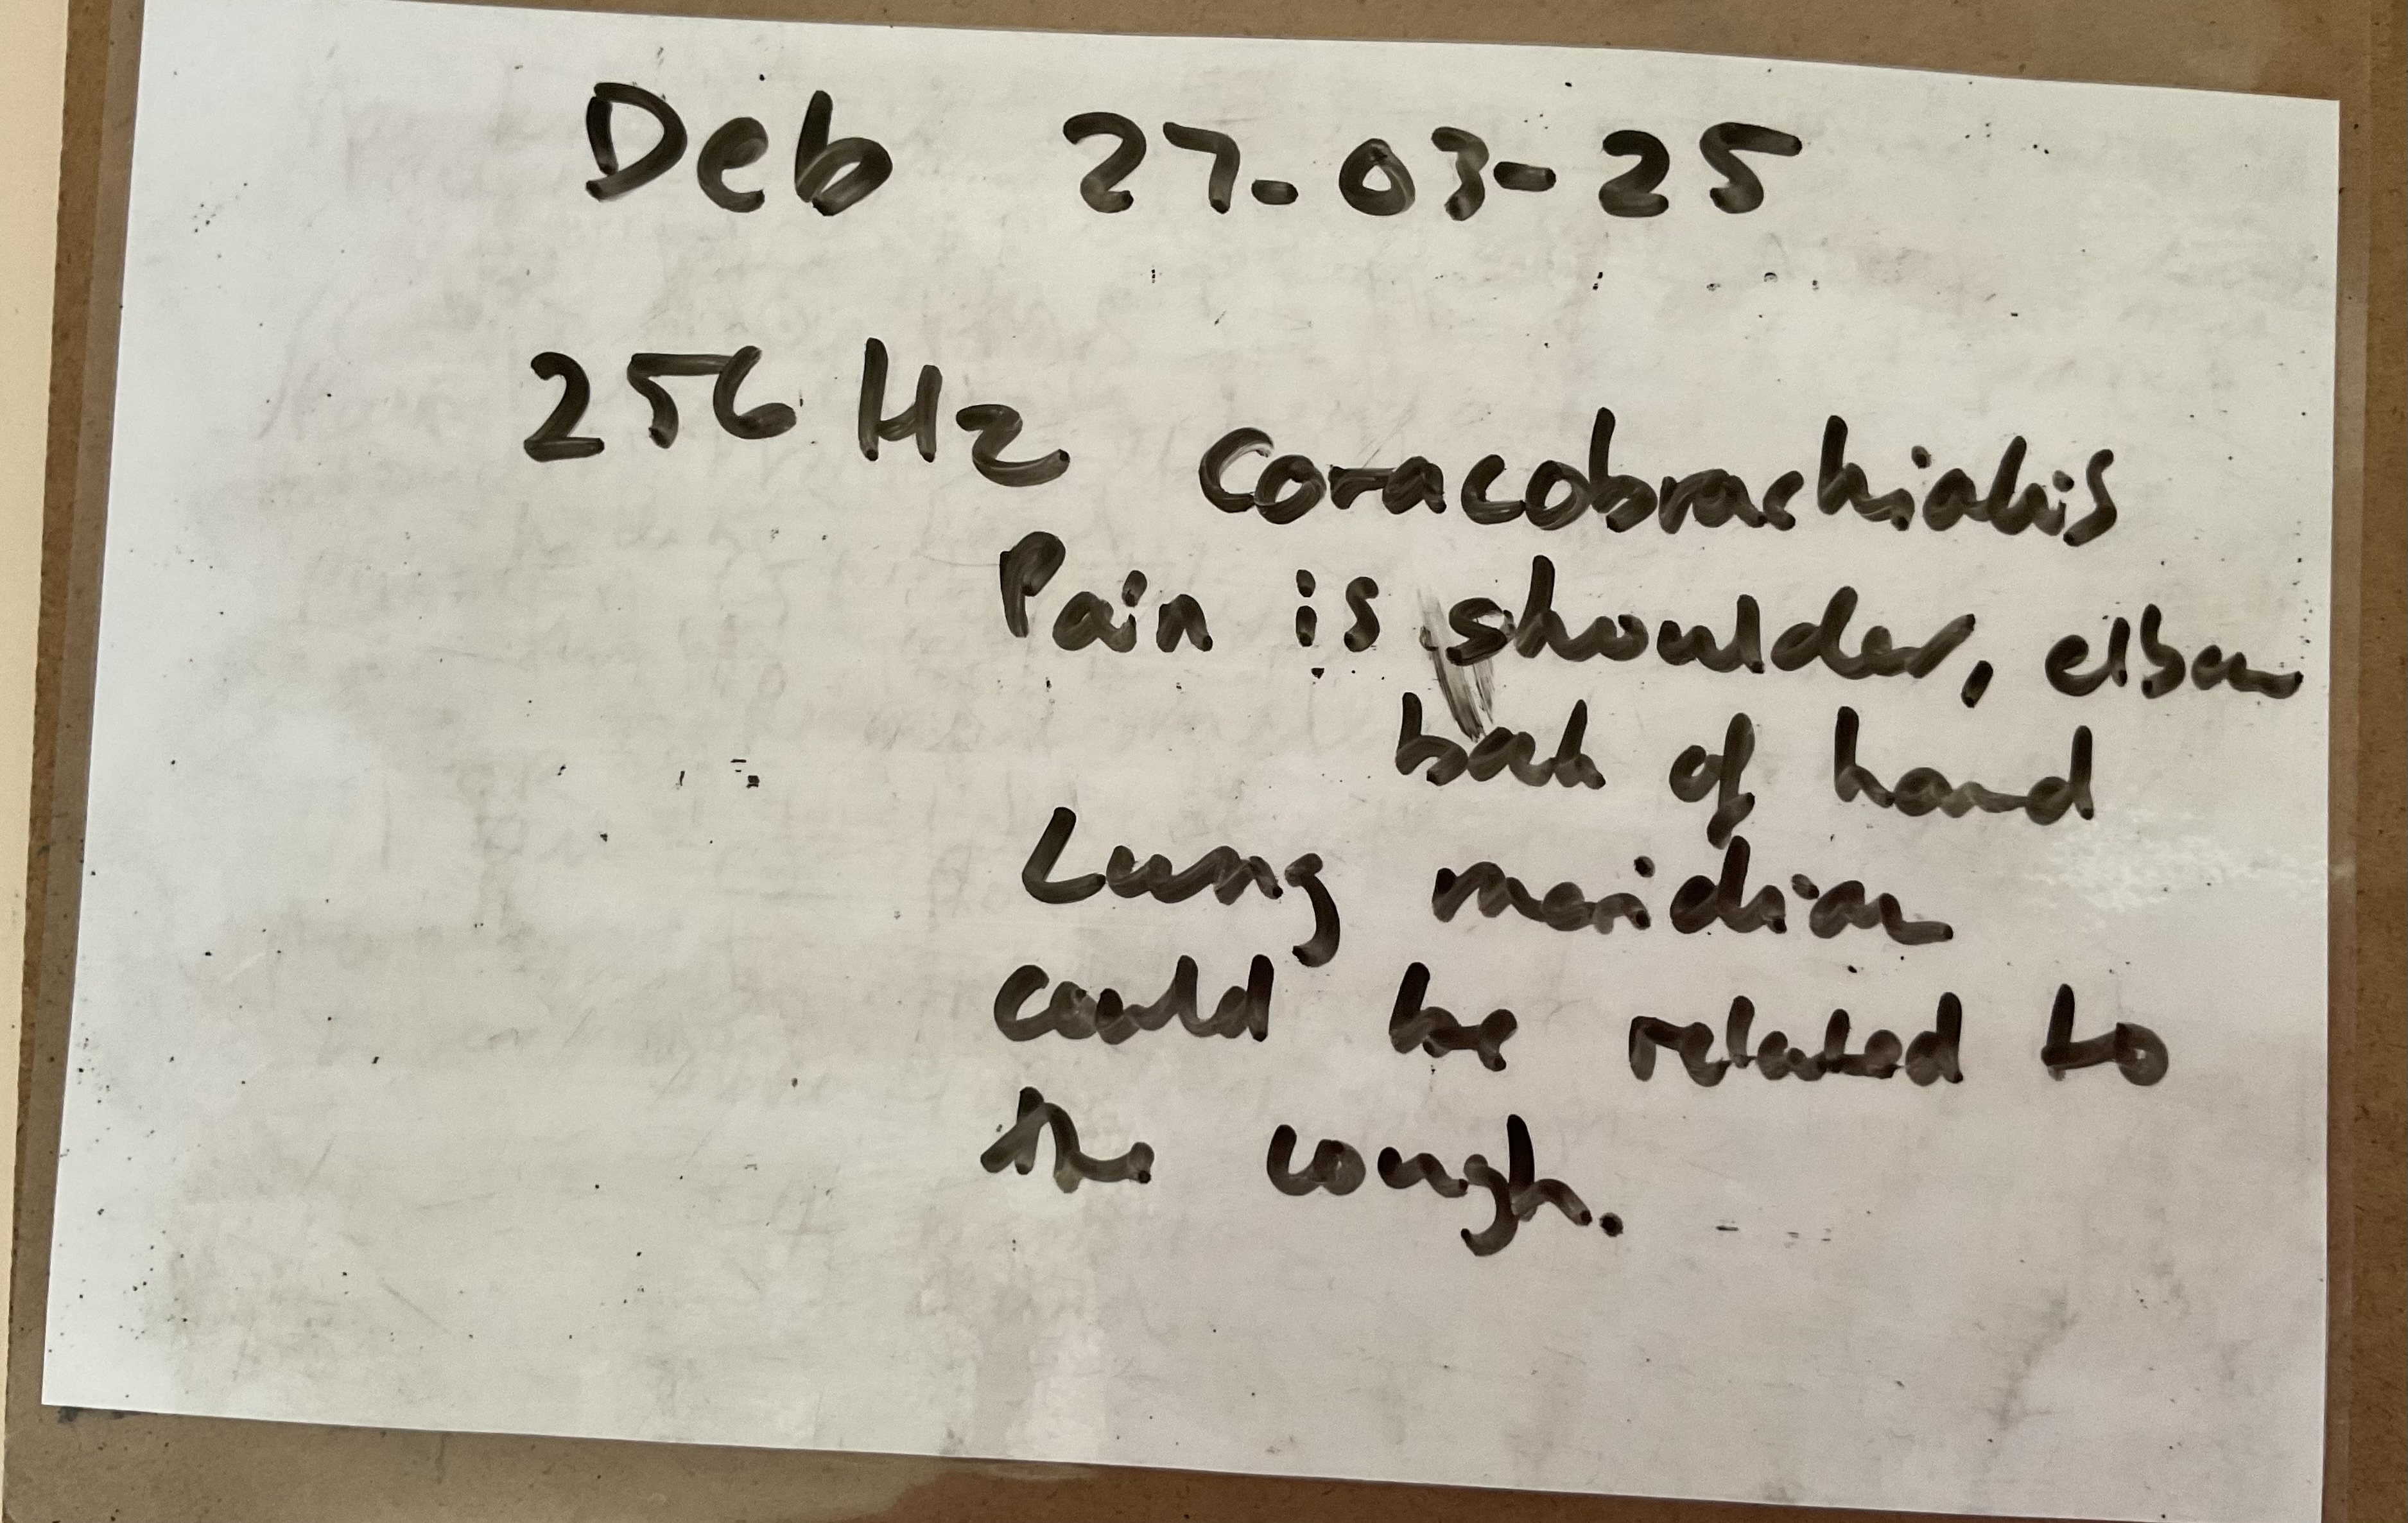 Deb 27-03-25
256 Hz Coracobrachialis
Pain is shoulder, elbow
back of hand
Lung meridian
could be related to
the cough.